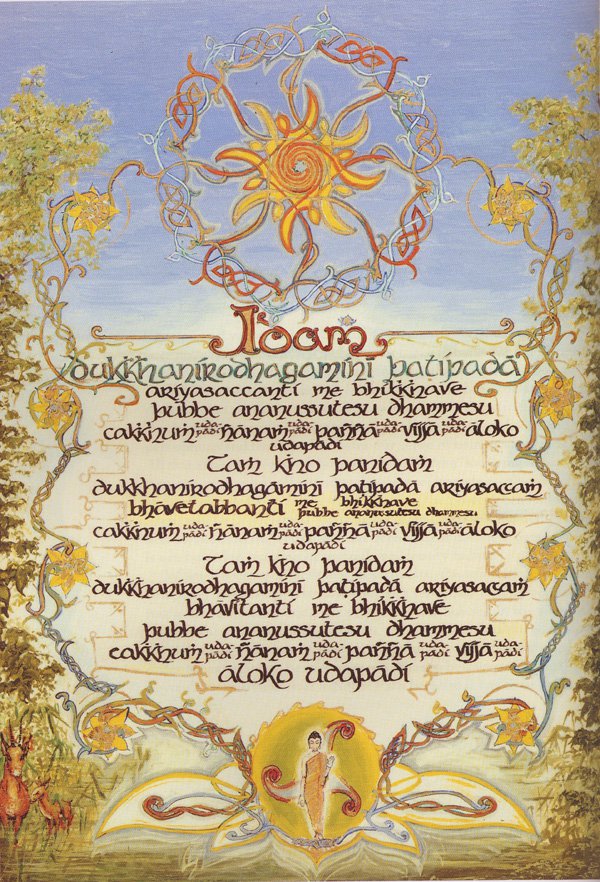 Idaṁ
dukkhanirodhagaminī paṭipadā
ariyasaccanti me bhikkhave
pubbe ananussutesu dhammesu
cakkhuṁ uda-pādi ñānaṁ uda-pādi paññā uda-pādi vijjā uda-pādi āloko
udapādi
Taṁ kho panidaṁ
dukkhanirodhagāminī paṭipadā ariyasaccaṁ
bhāvetabbanti me bhikkhave pubbe ananussutesu dhammesu
cakkhuṁ uda-pādi ñānaṁ uda-pādi paññā uda-pādi vijjā uda-pādi āloko
udapādi
Taṁ kho panidaṁ
dukkhanirodhagāminī paṭipadā ariyasaccaṁ
bhāvitanti me bhikkhave
pubbe ananussutesu dhammesu
cakkhuṁ uda-pādi ñānaṁ uda-pādi paññā uda-pādi vijjā uda-pādi
āloko udapādi